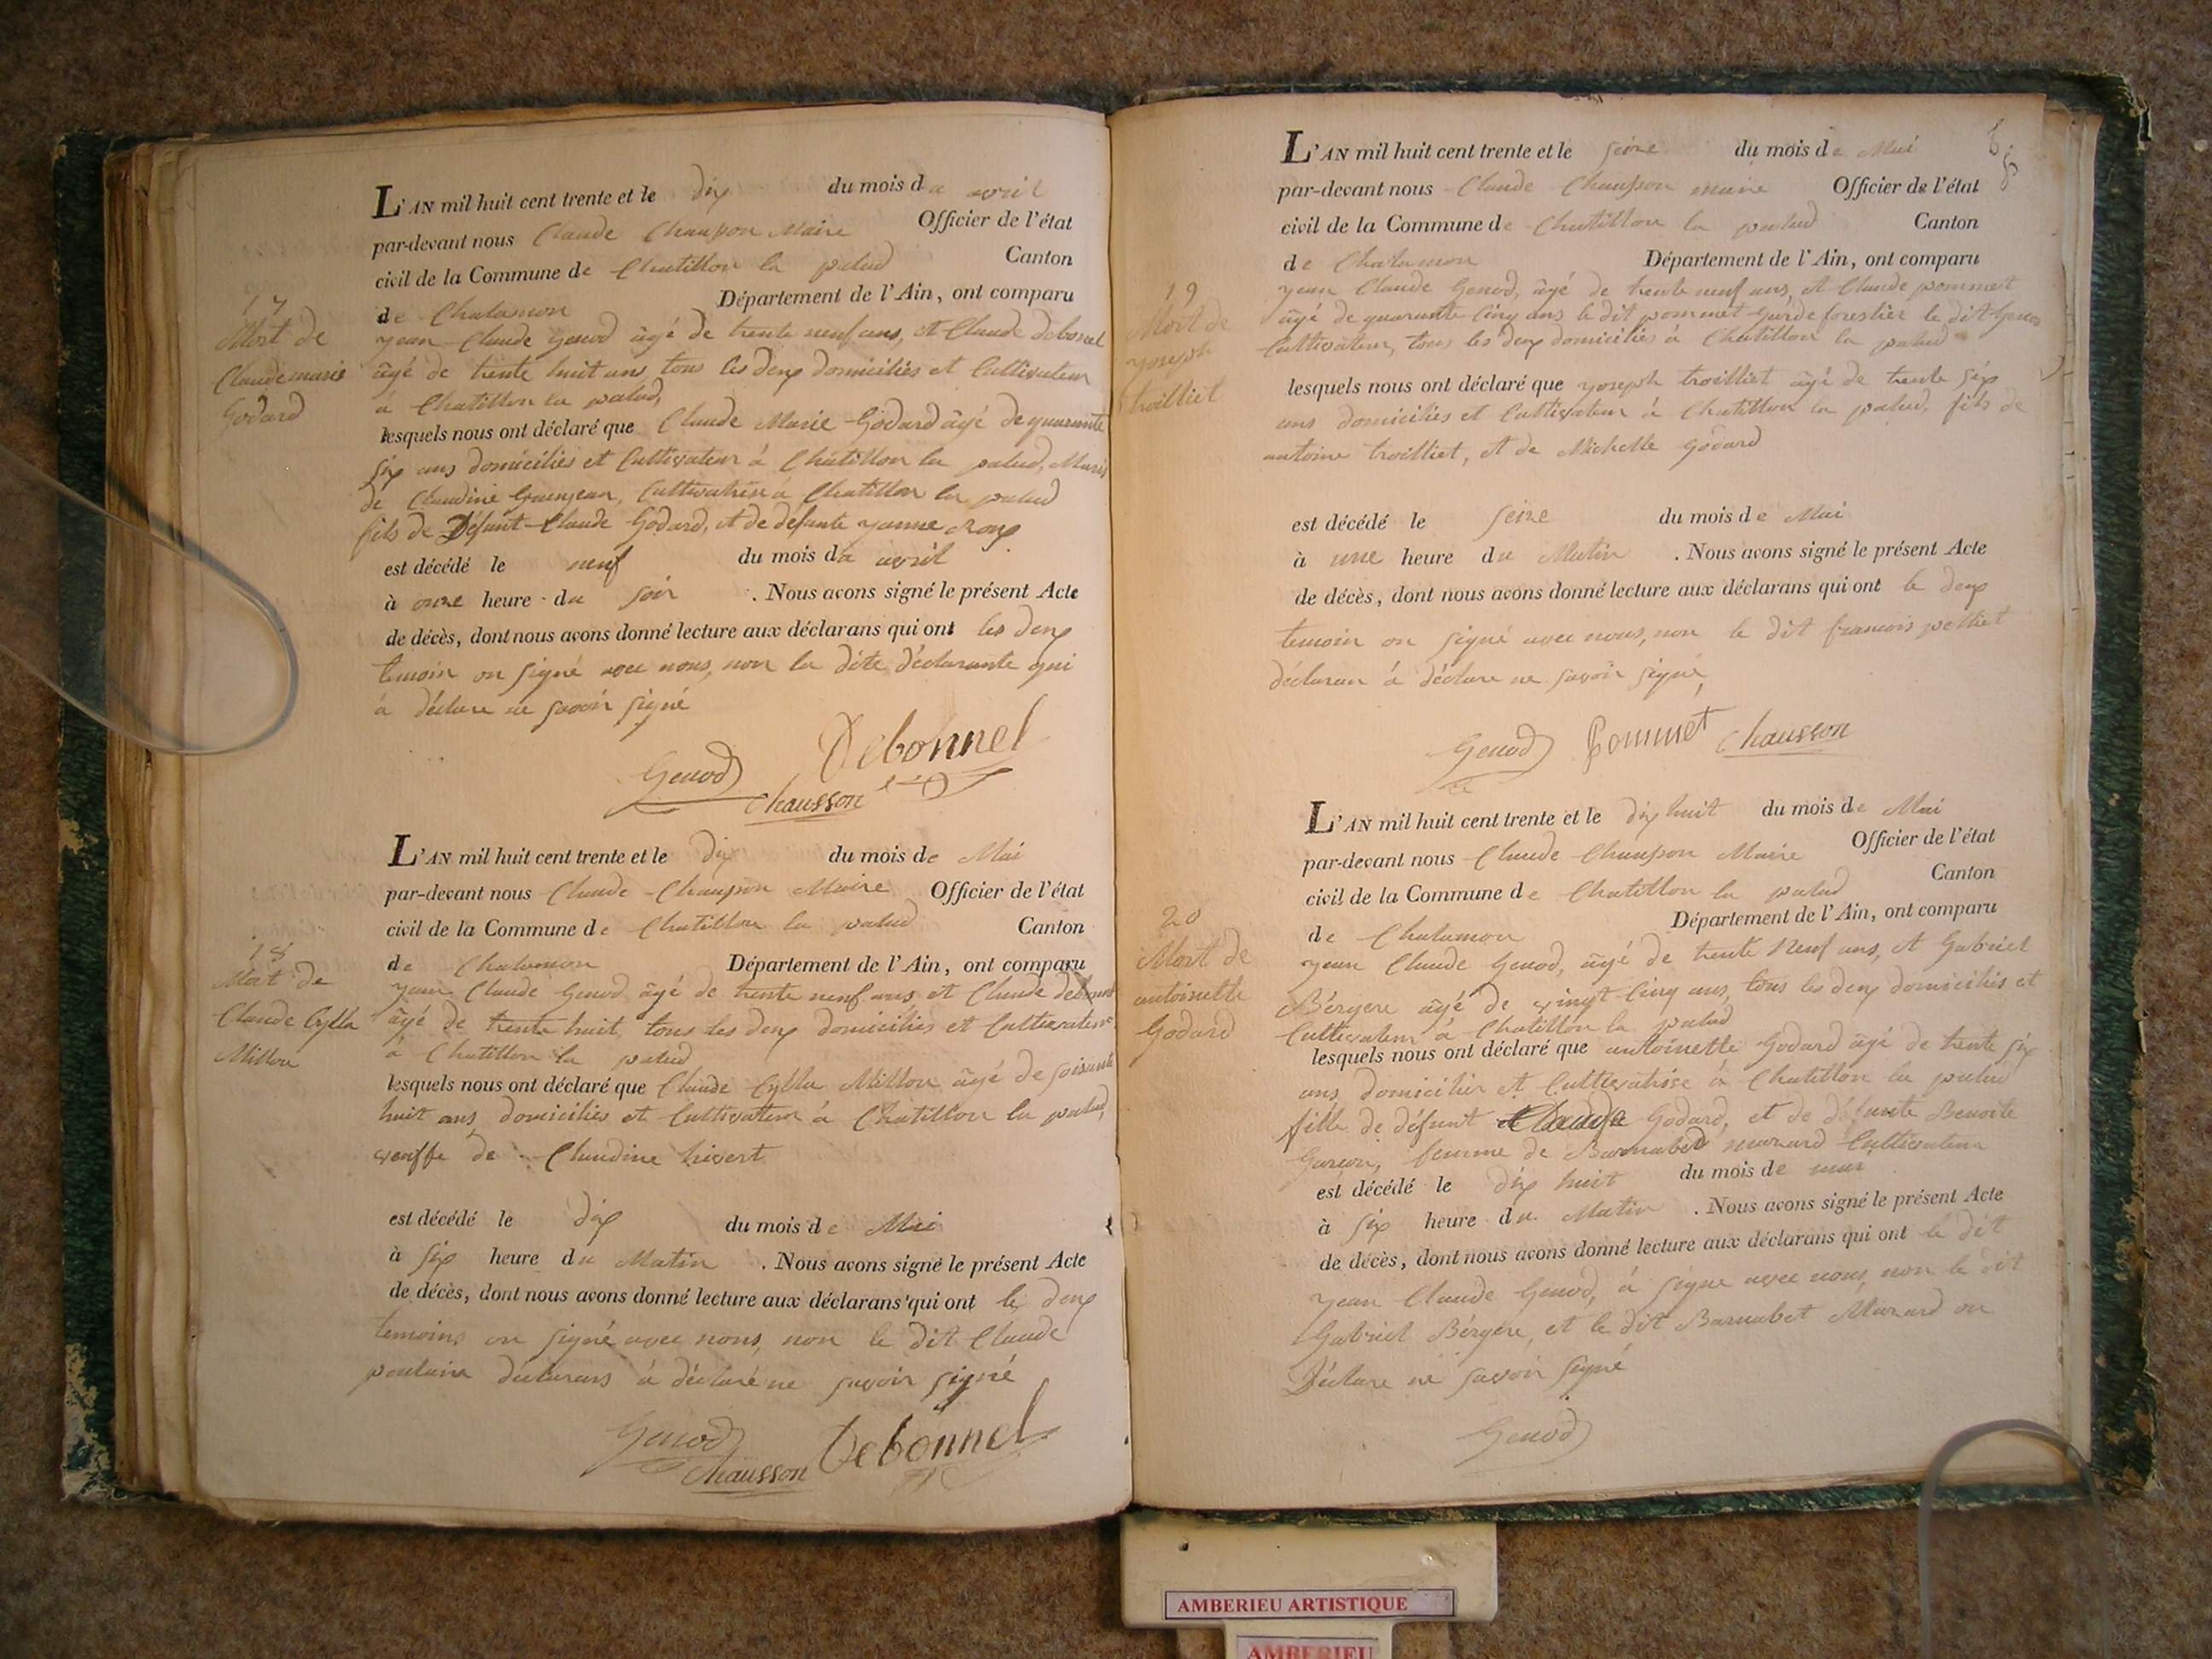 L'AN mil huit cent trente et le dix du mois de avril
par-devant nous Claude Chausson Maire Officier de l'état
civil de la Commune de Chatillon la palud Canton
de Chalamon Département de l'Ain, ont comparu
17
Mort de
Claude marie
Godard
yean Claude Genod âgé de trente neuf ans, et Claude debonel
âgé de trente huit ans tous les deux domiciliés et Cultivateur
à Chatillon la palud,
lesquels nous ont déclaré que Claude Marie Godard âgé de quarante
six ans domiciliés et Cultivateur à Chatillon la palud, Maris
de Claudine Cultivatrise à Chatillon la palud
fils de Défunt Claude Godard, et de défunte yanne
est décédé le neuf du mois da avril
à onze heure du soir . Nous avons signé le présent Acte
de décès, dont nous avons donné lecture aux déclarans qui ont les deux
temoin on signé avec nous, non la dite déclarante qui
à déclare ne savoir signé
Genod Debonnel
Chausson
L'AN mil huit cent trente et le dix du mois de Mai
par-devant nous Claude Chausson Maire Officier de l'état
civil de la Commune de Chatillon la palud Canton
de Chalamon Département de l'Ain, ont comparu
18
Mort de
Claude
Millon
yean Claude Genod âgé de trente neuf ans et Claude
âgé de trente huit, tous les deux domiciliés et Cultivateur
à Chatillon la palud
lesquels nous ont déclaré que Claude Millon âgé de soisante
huit ans, domiciliés et Cultivateur à Chatillon la palud,
veuffe de Claudine hivert
est décédé le dix du mois de Mai
à six heure du Matin . Nous avons signé le présent Acte
de décès, dont nous avons donné lecture aux déclarans qui ont les deux
temoins on signé avec nous, non le dit Claude
déclarans à déclaré ne savoir signé
Genod Debonnel
Chausson
L'AN mil huit cent trente et le seize du mois de Mai
par-devant nous Claude Chausson maire Officier de l'état
civil de la Commune de Chatillon la palud Canton
de Chalamon Département de l'Ain, ont comparu
19
Mort de
yoseph
troilliet
yean Claude Genod, âgé de trente neuf ans, et Claude pommet
âgé de quarante Cinq ans le dit pommet garde forestier le dit Genod
Cultivateur, tous les deux domiciliés à Chatillon la palud
lesquels nous ont déclaré que yoseph troilliet âgé de trente six
ans domiciliés et Cultivateur à Chatillon la palud, fils de
antoine troilliet, et de Michelle Godard
est décédé le seize du mois de Mai
à une heure du Matin . Nous avons signé le présent Acte
de décès, dont nous avons donné lecture aux déclarans qui ont le deux
temoin on signé avec nous, non le dit francois pelliet
déclaran à déclare ne savoir signé,
Genod Pommet Chausson
L'AN mil huit cent trente et le dix huit du mois de Mai
par-devant nous Claude Chausson Maire Officier de l'état
civil de la Commune de Chatillon la palud Canton
de Chalamon Département de l'Ain, ont comparu
20
Mort de
antoinette
Godard
yean Claude Genod, âgé de trente neuf ans, et Gabriel
Bérgere âgé de vingt Cinq ans, tous les deux domiciliés et
Cultivateur à Chatillon la palud
lesquels nous ont déclaré que antoinette Godard âgé de trente six
ans domicilier et Cultivatrise à Chatillon la palud
fille de défunt Claude Godard, et de défunte Benoite
femme de Barnabet Cultivateur
est décédé le dix huit du mois de mai
à six heure du Matin . Nous avons signé le présent Acte
de décès, dont nous avons donné lecture aux déclarans qui ont le dit
yean Claude Genod, à signe avec nous, non le dit
Gabriel Bérgere, et le dit Barnabet on
Déclare ne savoir signé
Genod
AMBERIEU ARTISTIQUE
AMBERIEU